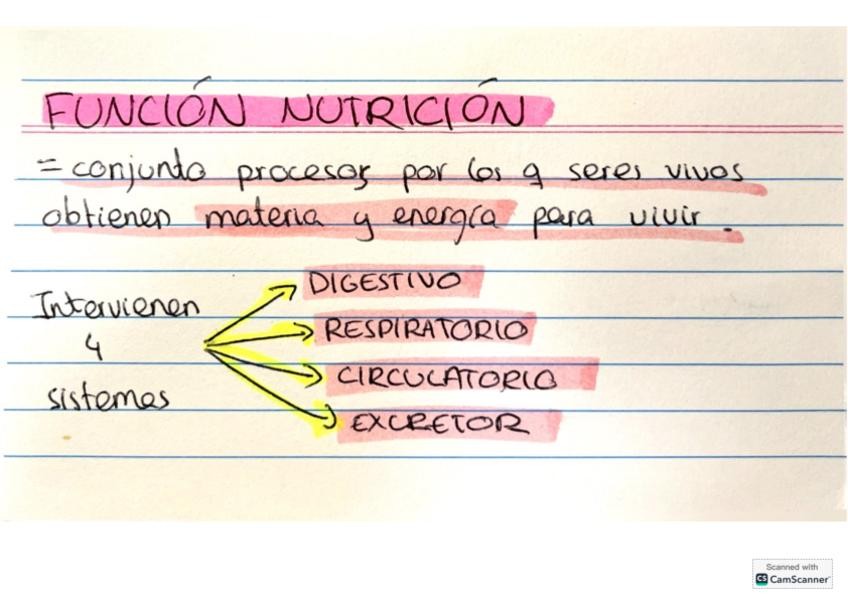 FUNCIÓN NUTRICIÓN
= conjunto procesos por los q seres vivos
obtienen materia y energía para vivir.
Intervienen
4
sistemas
DIGESTIVO
RESPIRATORIO
CIRCULATORIO
EXCRETOR
Scanned with
CS CamScanner